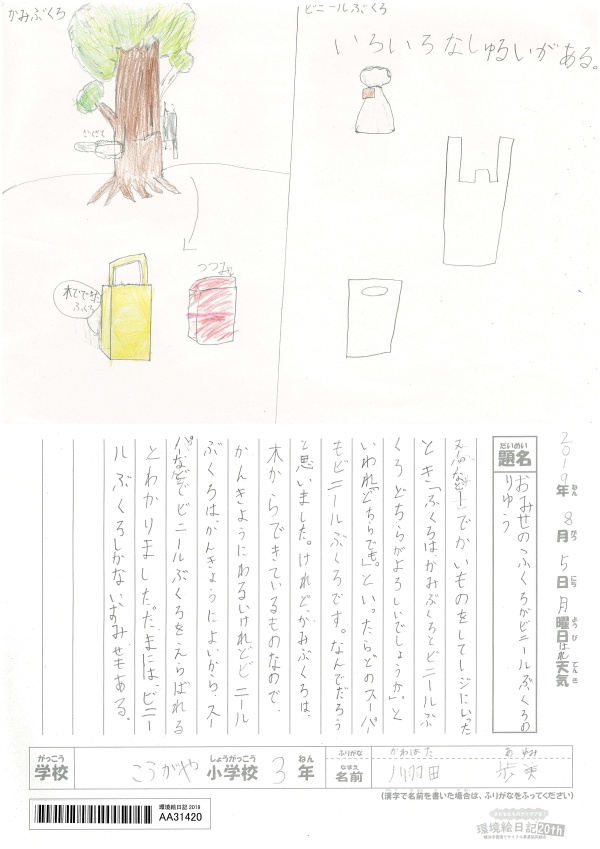 かみぶくろ
ビニールぶくろ
いろいろなしゅるいがある。
木でできた
ふくろ
つつみ
2019年ねん 8月がつ 5日にち 月曜日ようび はれ天気てんき
だいめい
題名
おみせのふくろがビニールぶくろの
りゆう
スーパーなどでかいものをしてレジにいった
とき「ふくろは、かみぶくろとビニールぶ
くろどちらがよろしいでしょうか。」と
いわれ「どちらでも。」といったらどのスーパー
もビニールぶくろです。なんでだろう
と思いました。けれど、かみぶくろは、
木からできているものなので、
かんきょうにわるいけれどビニール
ぶくろは、かんきょうによいから、スー
パーなどでビニールぶくろをえらばれる
とわかりました。だ、たまには、ビニー
ルぶくろしかないおみせもある。
がっこう
学校
こうがや
しょうがっこう
小学校
3
ねん
年
ふりがな
なまえ
名前
かわはた
川羽田
あゆみ
歩実
(漢字で名前を書いた場合は、ふりがなをふってください)
環境絵日記 2019
AA31420
環境絵日記20th